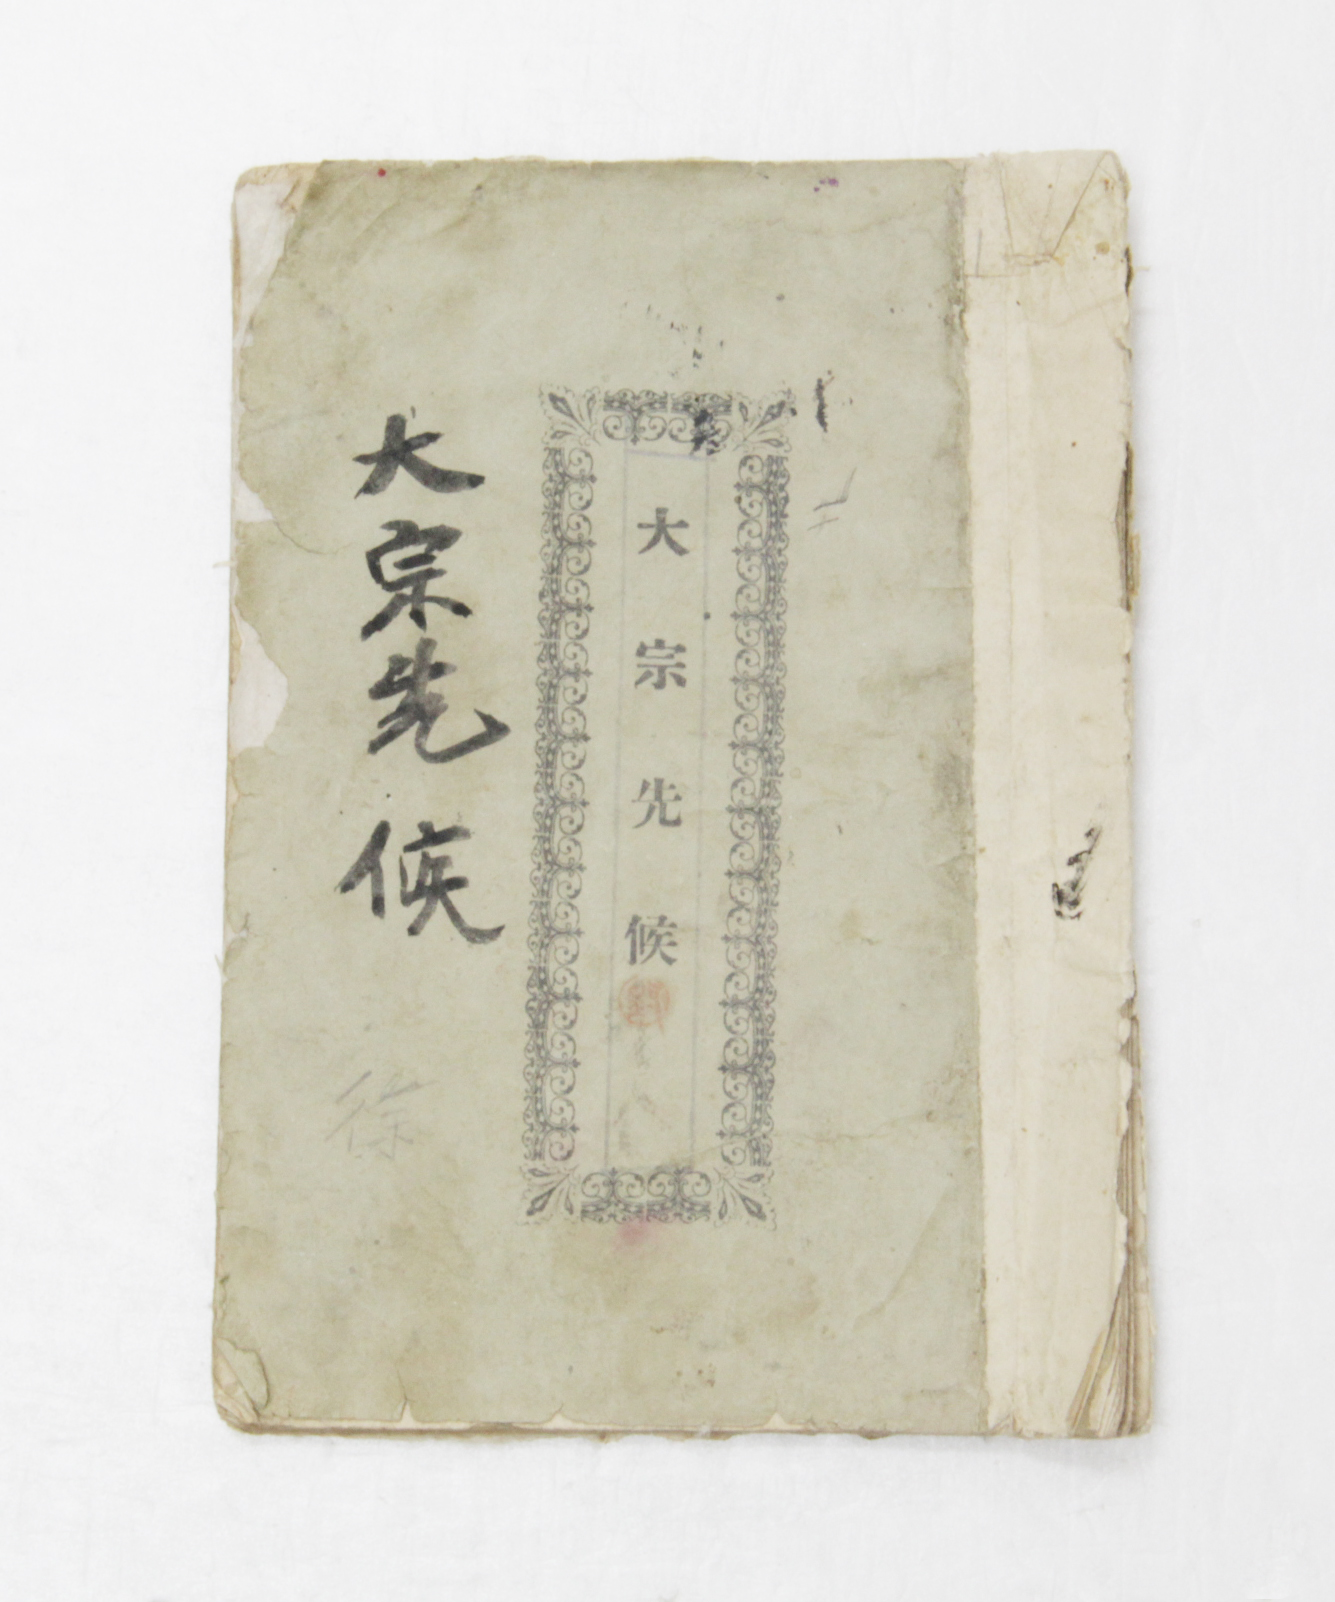 大宗先候
大宗先候
徐